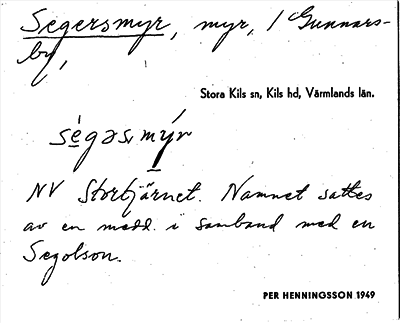 Segersmyr, myr, i Gunnars-
by,
Stora Kils sn, Kils hd, Värmlands län.
ségəsmýr
NV Stortjärnet. Namnet sattes
av en medd. i samband med en
Segolson.
PER HENNINGSSON 1949